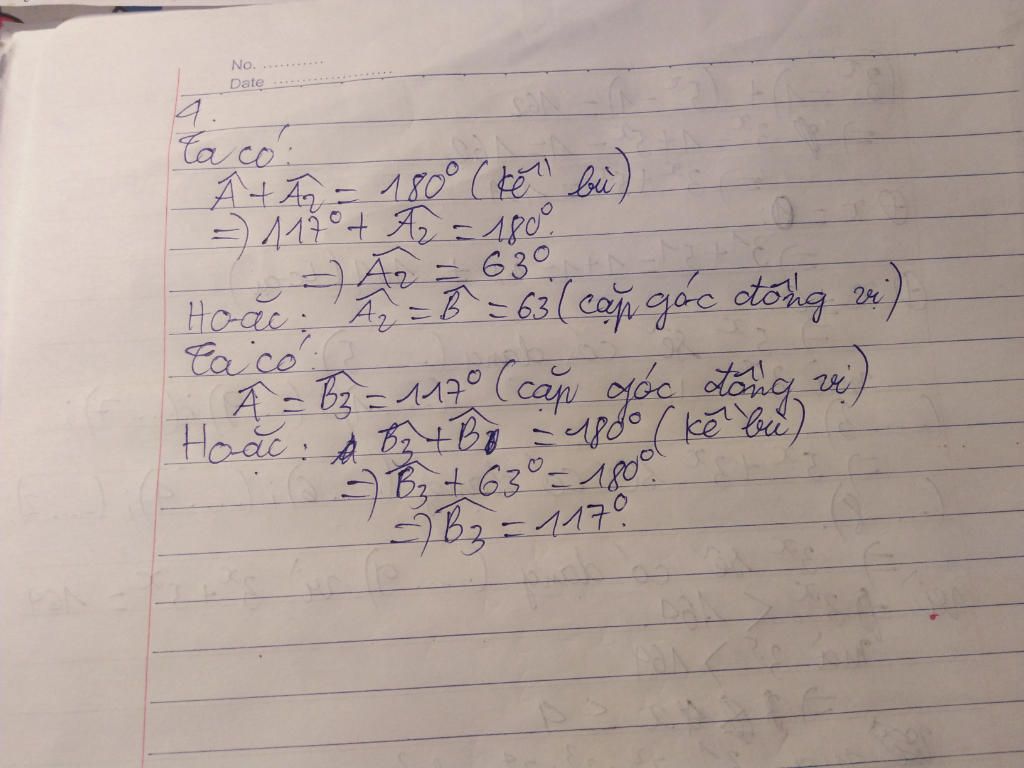 No. ............
Date ........................
1.
Ta có:
Â + Â₂ = 180° (kề bù)
=) 117° + Â₂ = 180°.
=) Â₂ = 63°
Hoặc: Â₂ = B̂ = 63 (cặp góc đồng vị)
Ta có:
Â = B̂₃ = 117° (cặp góc đồng vị)
Hoặc: B̂₃ + B̂ = 180° (kề bù)
=) B̂₃ + 63° = 180°.
=) B̂₃ = 117°.